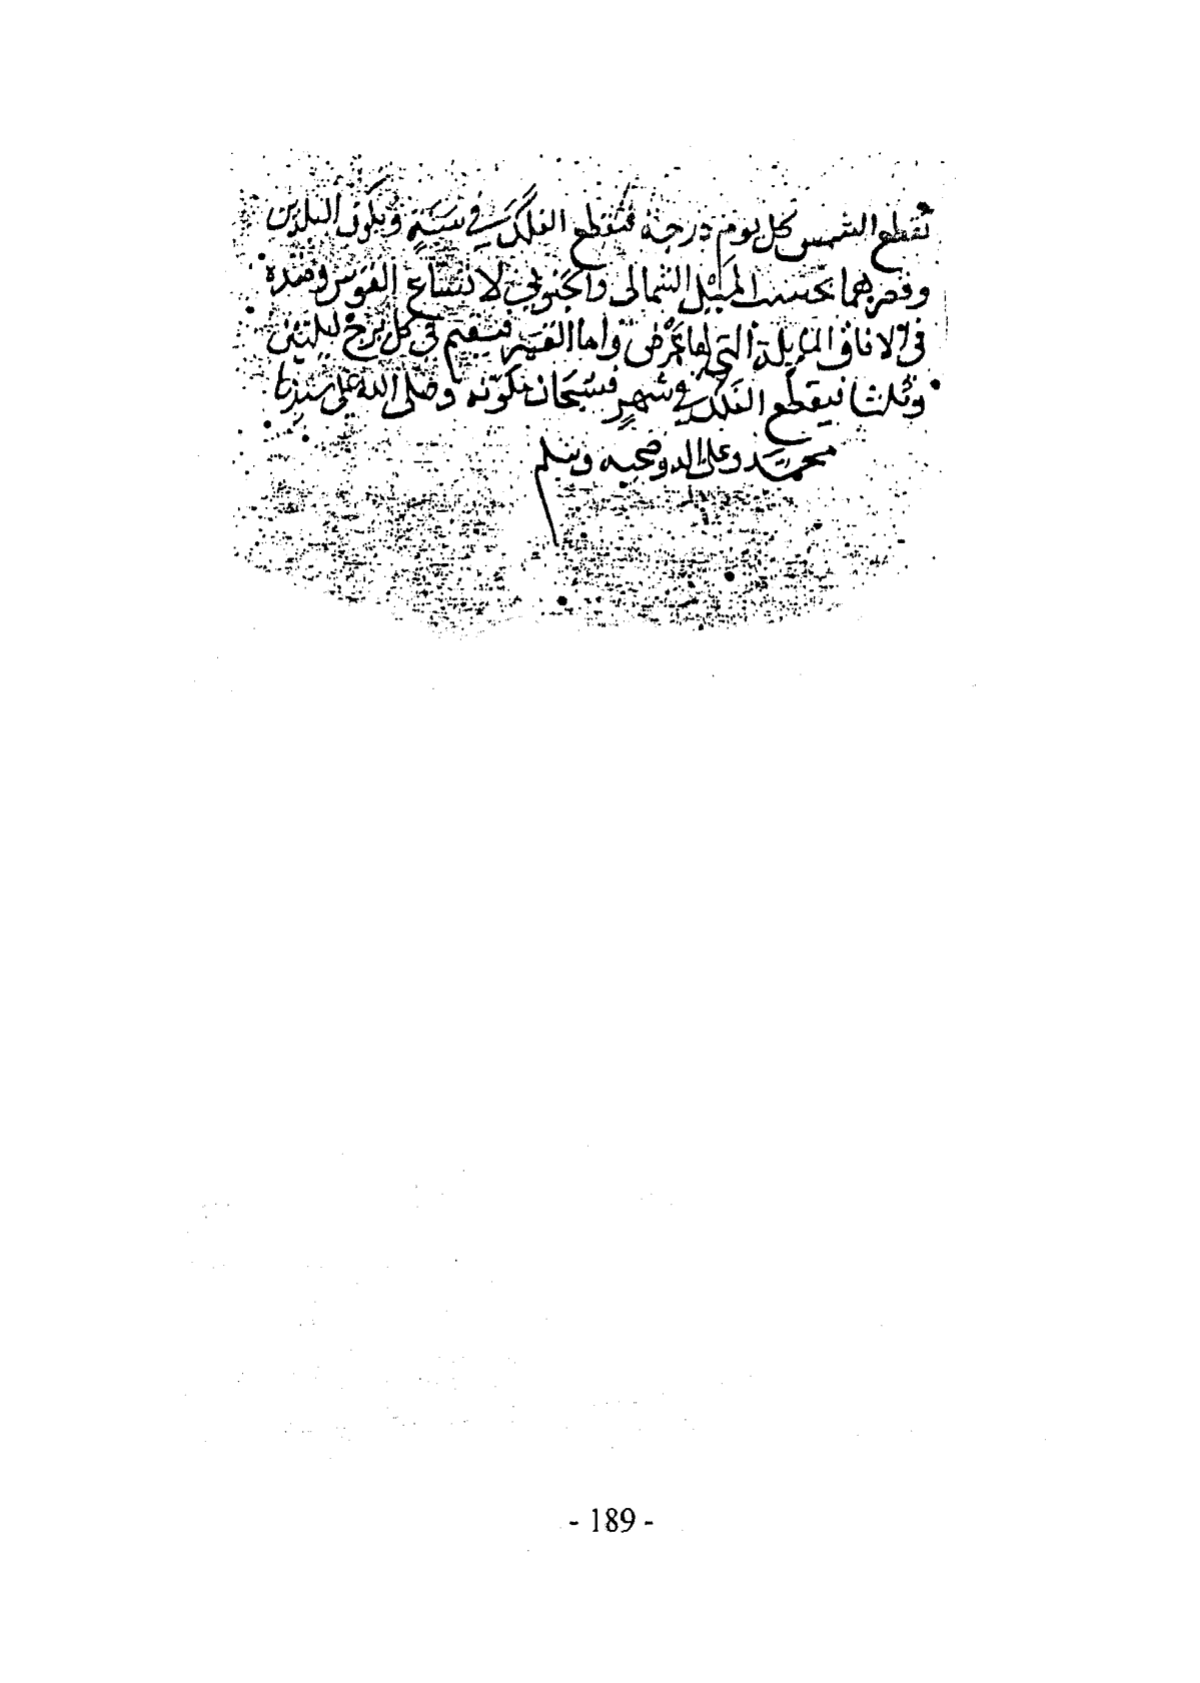 تقطع الشمس كل يوم درجة فتقطع الفلك في سنة ويكون
وقصرهما بحسب الميل الشمالى والجنوبي لاتساع القوس وضده
في الافاق المايلة التي لها عرض واما القمر فيقيم في كل برج ليلتين
وثلثا فيقطع الفلك في شهر فسبحان مكونه وصلى الله على سيدنا
محمد وعلى اله وصحبه وسلم
- 189 -